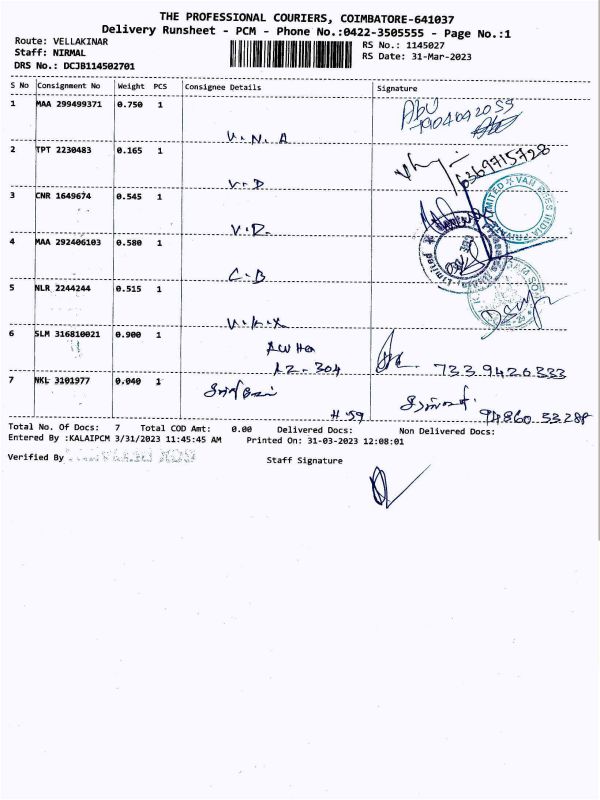 THE PROFESSIONAL COURIERS, COIMBATORE-641037
Delivery Runsheet - PCM - Phone No.:0422-3505555 - Page No.:1
Route: VELLAKINAR RS No.: 1145027
Staff: NIRMAL RS Date: 31-Mar-2023
DRS No.: DCJB114502701
S No Consignment No Weight PCS Consignee Details Signature
1 MAA 299499371 0.750 1
V.N.A
2 TPT 2230483 0.165 1 6369715728
V.D
3 CNR 1649674 0.545 1
V.D.
4 MAA 292406103 0.580 1
C.B
5 NLR 2244244 0.515 1
6 SLM 316810021 0.900 1
A2-304 7339420333
7 NKL 3101977 0.040 1
H-59 94860 53288
Total No. Of Docs: 7 Total COD Amt: 0.00 Delivered Docs: Non Delivered Docs:
Entered By :KALAIPCM 3/31/2023 11:45:45 AM Printed On: 31-03-2023 12:08:01
Verified By
Staff Signature